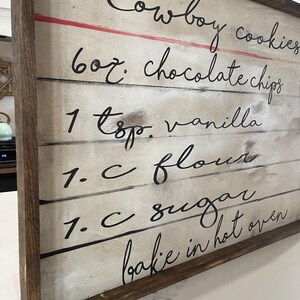 Cowboy cookies
6oz. chocolate chips
1 tsp. vanilla
1. c flour
1. c sugar
bake in hot oven